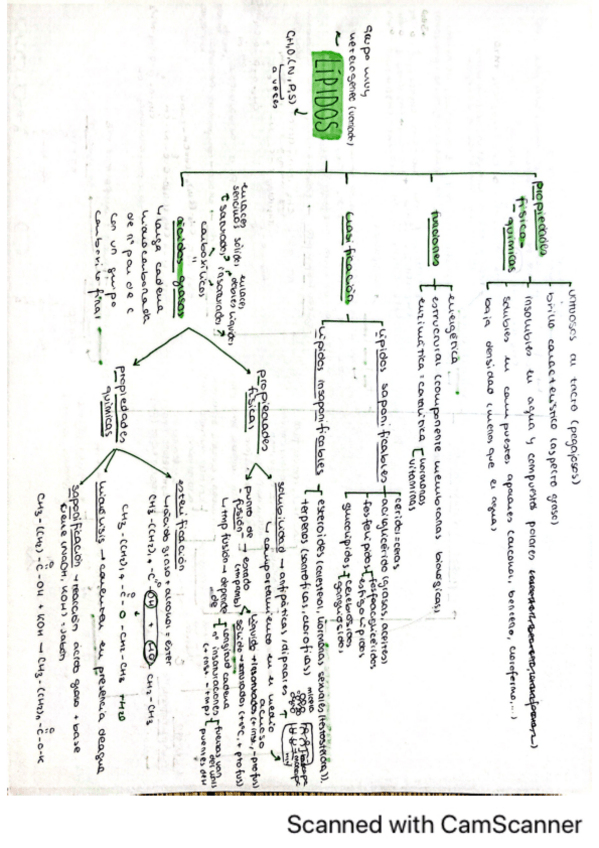 LÍPIDOS
grupo muy
heterogéneo (variado)
CHO, (N, P, S)
a veces
propiedades
físico
químicas
untosos al tacto (pegajosos)
brillo característico (aspecto graso)
insolubles en agua y compuestos polares
solubles en compuestos apolares (alcohol, benceno, cloroformo,...)
baja densidad (menos que el agua)
funciones
energética
estructural (componente membranas biológicas)
enzimática: catalítica
hormonas
vitaminas
clasificación
lípidos saponificables
céridos: ceras
acilglicéridos (grasas, aceites)
fosfolípidos
fosfoglicéridos
esfingolípidos
glucolípidos
cerebrósidos
gangliósidos
lípidos insaponificables
esteroides (colesterol, hormonas sexuales (testosterona))
terpenos (carotenos, clorofilas)
ácidos grasos
carboxílicos
saturados
enlaces
sencillos sólidos
insaturados
enlaces
dobles líquidos
larga cadena
hidrocarbonada
de nº par de C
con un grupo
carboxilo final
propiedades
físicas
solubilidad → antipáticas (dipolares)
comportamiento en el medio
acuoso
punto de
fusión
estado
líquido → insaturados
sólido → saturados
tmp fusión → depende
de
longitud cadena
nº insaturaciones
puentes de H
propiedades
químicas
esterificación
ácido graso + alcohol = éster
CH3-(CH2)14-C-OH + HO CH2-CH3
O
CH3-(CH2)14-C-O-CH2-CH3 + H2O
hidrólisis → contraria en presencia de agua
saponificación → reacción ácido graso + base
NaOH, KOH) = jabón
CH3-(CH2)-C-OH + KOH → CH3-(CH2)n-C-O-K
Scanned with CamScanner